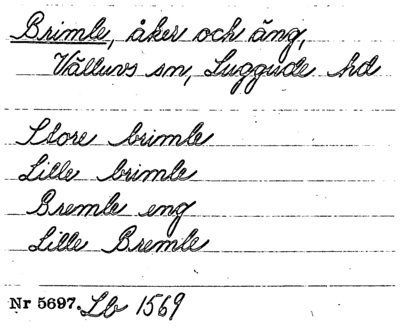 Brimle, åker och äng,
Välluvs sn, Luggude hd
Store brimle
Lille brimle
Bremle eng
Lille Bremle
Nr 5697. Lb 1569